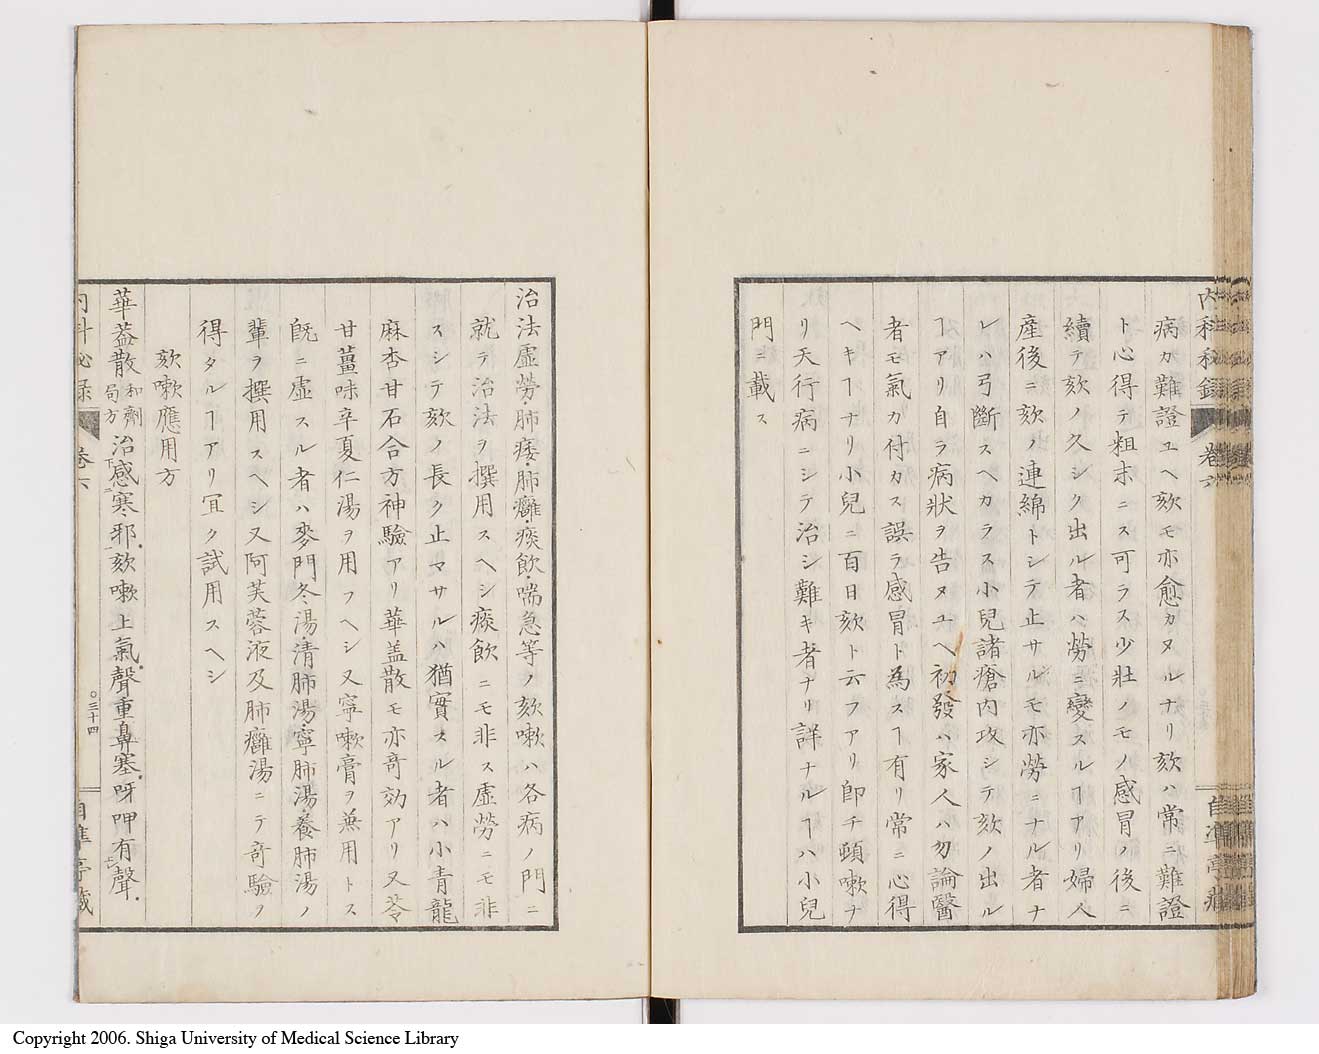 内科秘録 卷六
病カ難證ユヘ欬モ亦愈カヌルナリ欬ハ常ニ難證
ト心得テ粗末ニス可ラス少壯ノモノ感冒ノ後ニ
續テ欬ノ久シク出ル者ハ勞ニ變スルヿアリ婦人
産後ニ欬ノ連綿トシテ止サルモ亦勞ニナル者ナ
レハ弓斷スヘカラス小兒諸瘡内攻シテ欬ノ出ル
ヿアリ自ラ病狀ヲ告ヌユヘ初發ハ家人ハ勿論醫
者モ氣カ付カス誤ラ感冒ト為スヿ有リ常ニ心得
ヘキヿナリ小兒ニ百日欬ト云フアリ卽チ頓嗽ナ
リ天行病ニシテ治シ難キ者ナリ詳ナルヿハ小兒
門ニ載ス
治法虛勞肺痿・肺癰・痰飮・喘急等ノ欬嗽ハ各病ノ門ニ
就テ治法ヲ撰用スヘシ痰飮ニモ非ス虛勞ニモ非
スシテ欬ノ長ク止マサルハ猶實スル者ハ小青龍
麻杏甘石合方神驗アリ華盖散モ亦奇効アリ又苓
甘薑味辛夏仁湯ヲ用フヘシ又寧嗽膏ヲ兼用トス
旣ニ虛スル者ハ麥門冬湯・清肺湯・寧肺湯・養肺湯ノ
輩ヲ撰用スヘシ又阿芙蓉液及肺癰湯ニテ奇驗ヲ
得タルヿアリ冝ク試用スヘシ
欬嗽應用方
華蓋散和劑局方治感寒邪欬嗽上氣聲重鼻塞呀呷有聲
三十四
自準亭藏
Copyright 2006. Shiga University of Medical Science Library